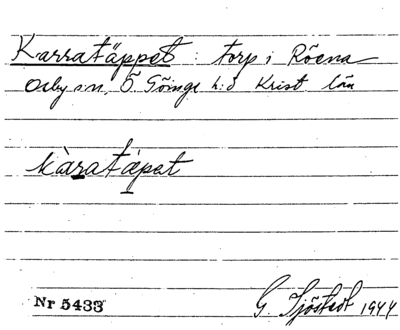 Karratäppet : torp i Röena
Osby sn, Ö. Göinge h:d Krist. län
kàratápat
Nr 5433
G. Sjöstedt 1944